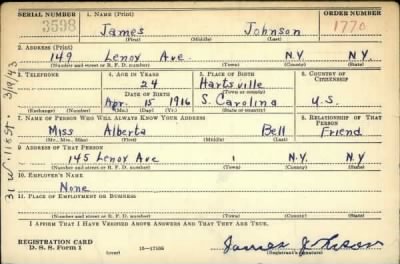 SERIAL NUMBER 1. NAME (Print) ORDER NUMBER
3598 James Johnson 1770
(First) (Middle) (Last)
2. ADDRESS (Print)
149 Lenox Ave. N.Y. N.Y.
(Number and street or R. F. D. number) (Town) (County) (State)
3. TELEPHONE 4. AGE IN YEARS 5. PLACE OF BIRTH 6. COUNTRY OF CITIZENSHIP
24 Hartsville
DATE OF BIRTH (Town or county)
Apr. 15 1916 S. Carolina U.S.
(Exchange) (Number) (Mo.) (Day) (Yr.) (State or country)
7. NAME OF PERSON WHO WILL ALWAYS KNOW YOUR ADDRESS 8. RELATIONSHIP OF THAT PERSON
Miss Alberta Bell Friend
(Mr., Mrs., Miss) (First) (Middle) (Last)
9. ADDRESS OF THAT PERSON
145 Lenox Ave N.Y. N.Y.
(Number and street or R. F. D. number) (Town) (County) (State)
10. EMPLOYER'S NAME
None
11. PLACE OF EMPLOYMENT OR BUSINESS
(Number and street or R. F. D. number) (Town) (County) (State)
I AFFIRM THAT I HAVE VERIFIED ABOVE ANSWERS AND THAT THEY ARE TRUE.
REGISTRATION CARD
D. S. S. Form 1 (over) 16—17105 James Johnson
(Registrant's signature)
31 W. 118 St. 3/19/43